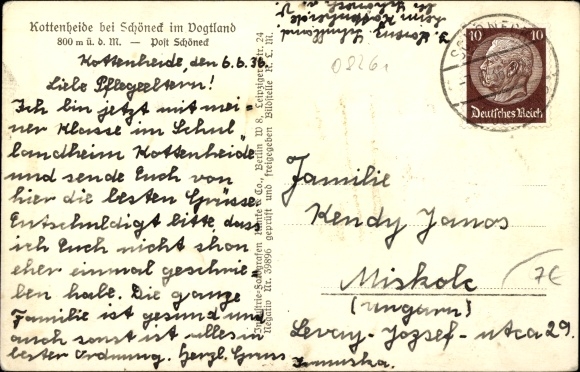 Kottenheide bei Schöneck im Vogtland
800 m ü. d. M. — Post Schöneck
Kottenheide, den 6.6.36.
Liebe Pflegeeltern!
Ich bin jetzt mit mei-
ner Klasse im Schul
landheim Kottenheide
und sende Euch von
hier die besten Grüsse.
Entschuldigt bitte dass
ich Euch nicht shon
eher einmal geschrie-
ben habe. Die ganze
Familie ist gesund und
auch sonst ist alles in
bester Ordnung. Herzl. Gruss
Industrie-Fotografen & Co., Berlin W 8, Leipziger Str. 24
Negativ Nr. 39896 geprüft und freigegeben Bildstelle R. L. M.
heim Kottenheide
0826
SCHÖNECK
10 10
Deutsches Reich
Familie
Kendy Janos
Miskolc
(Ungarn)
Levay-Jozsef-utca 29.
7€